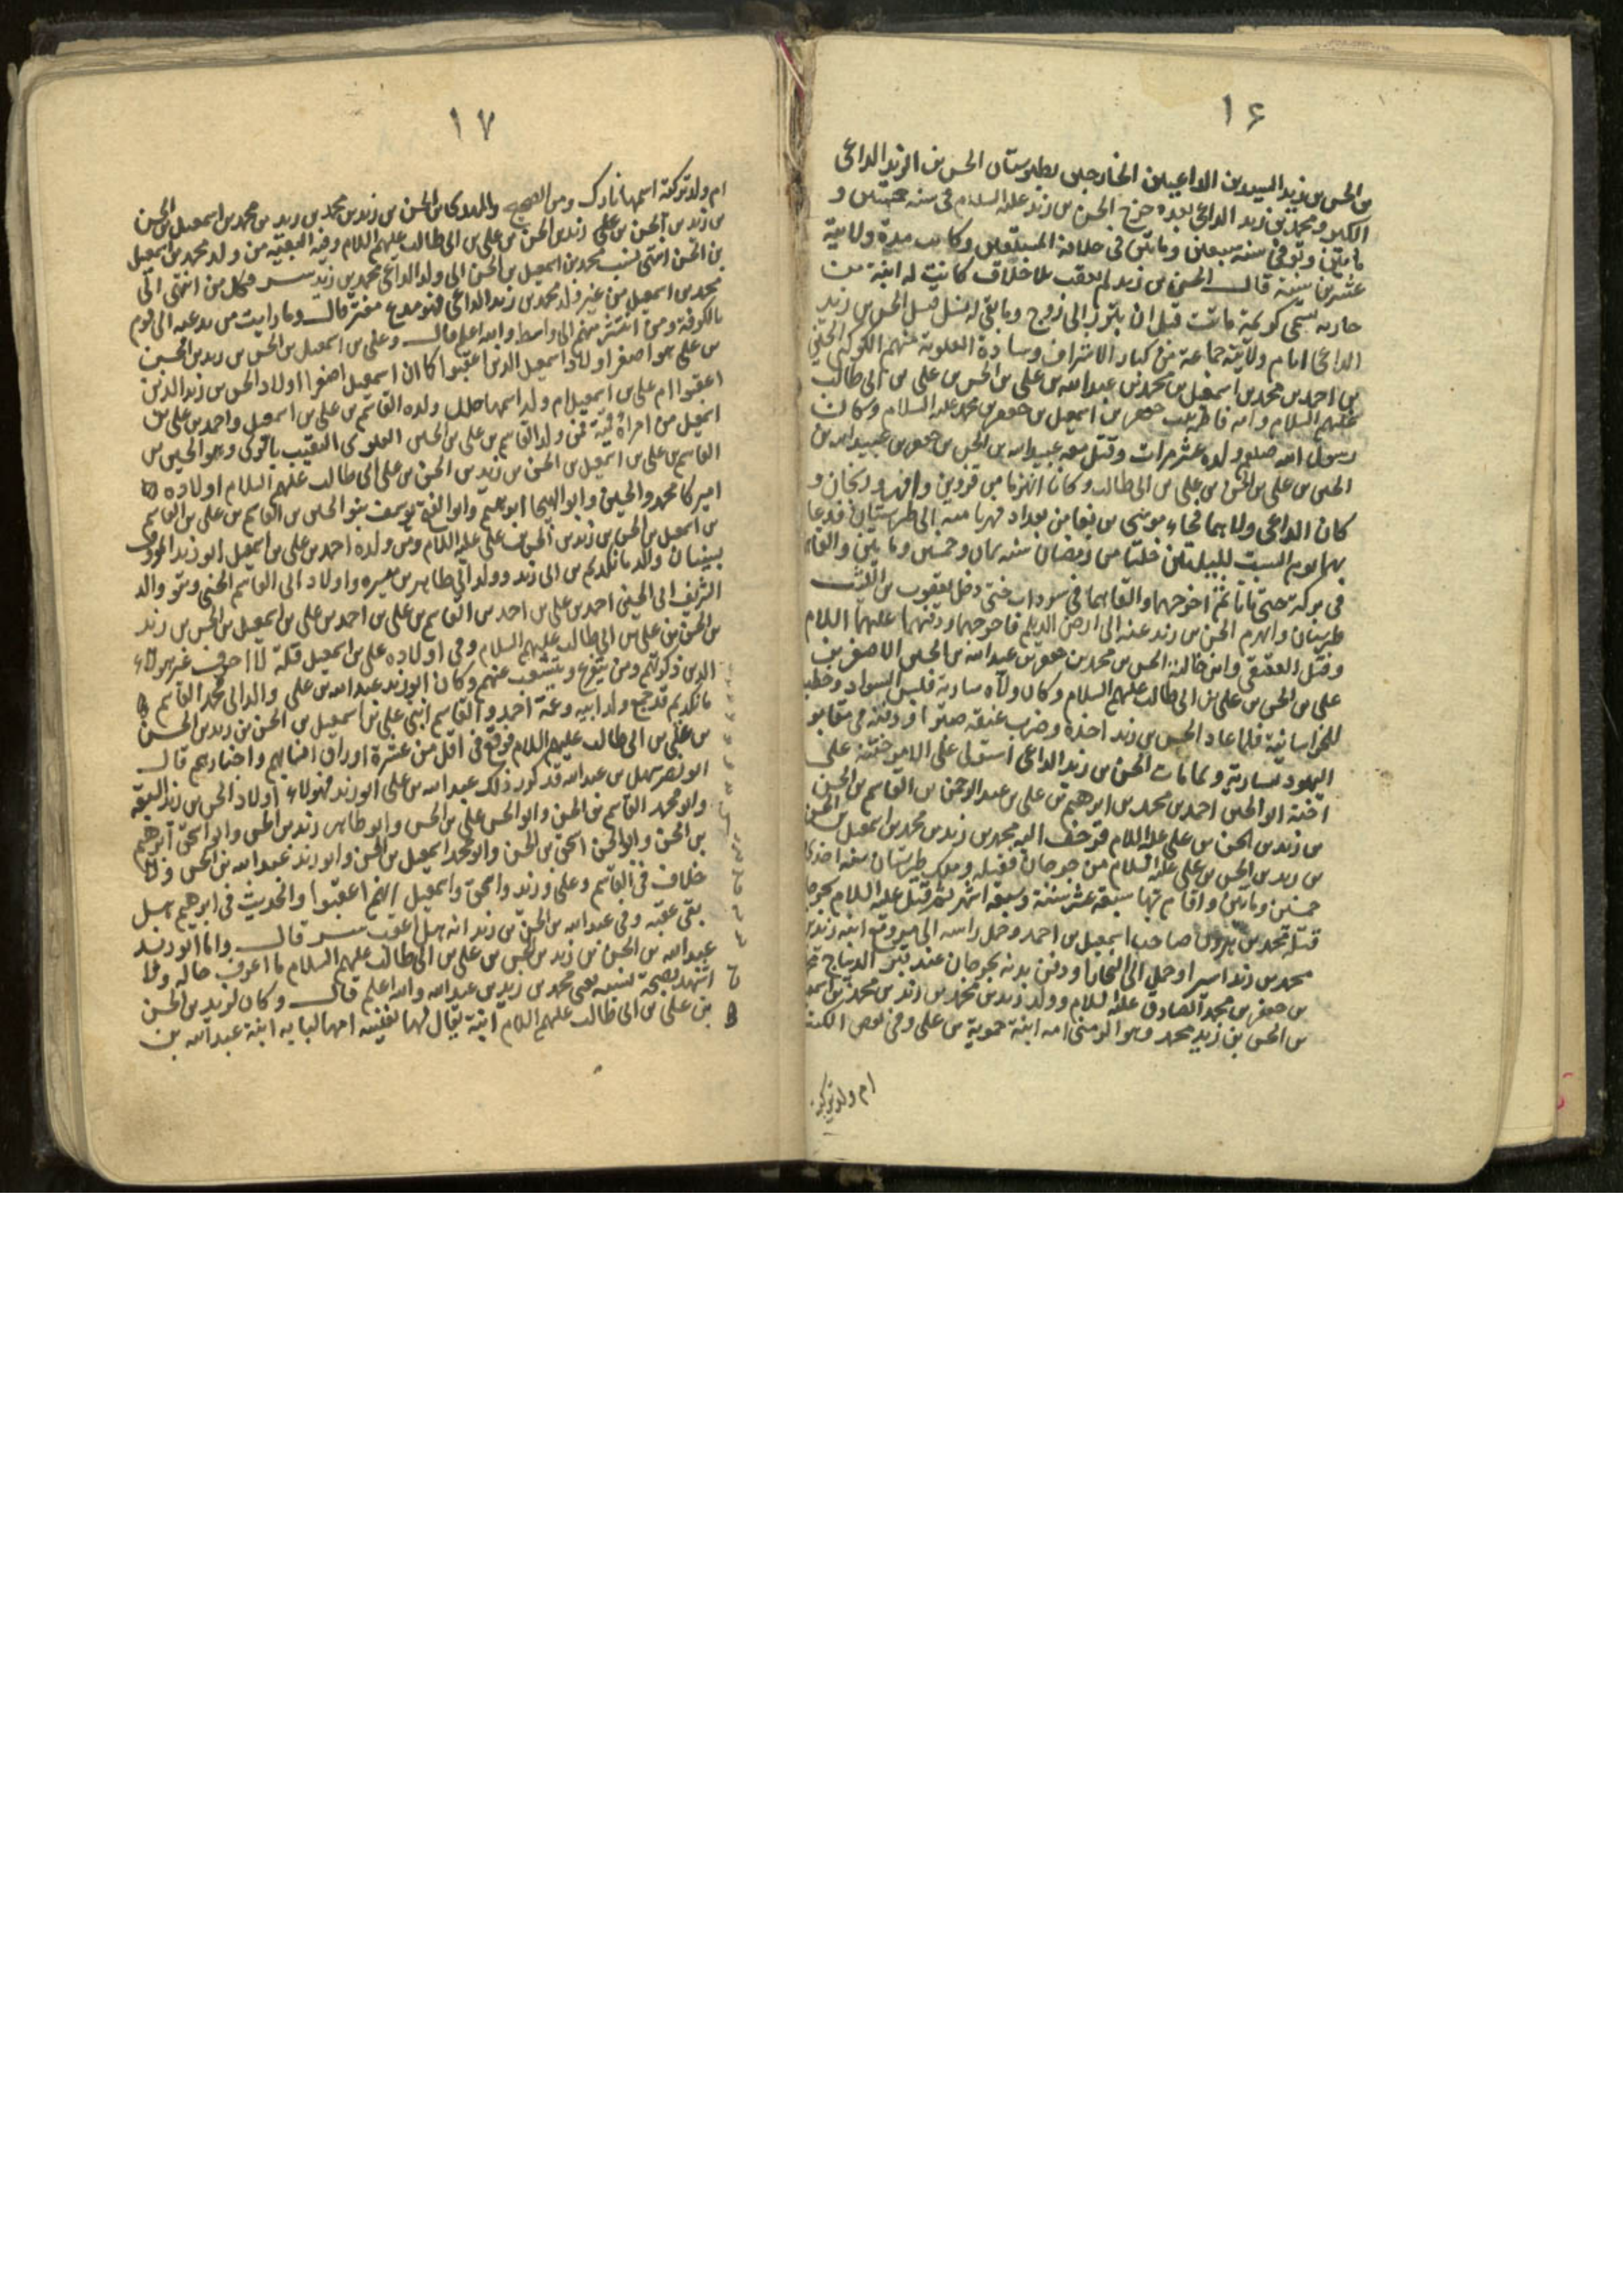 ١۶
بن الحسن بن زيد السيدين الداعيين الخارجين بطبرستان الحسن بن الزيد الداعى
الكبير ومحمد بن زيد الداعى بعده خرج الحسن بن زيد عليه السلام فى سنه خمسين و
مايتين وتوفى سنه سبعين ومايتين فى خلافة المستعين وكانت مدة ولايته
عشرين سنة قال الحسن بن زيد لم يعقب بلا خلاف كانت له ابنة من
جاريه تسمى كريمة ماتت قبل ان تبرز الى زوج وما بقى له نسل قتل الحسن بن زيد
الداعى ايام ولايته جماعة من كبار الاشراف وسادة العلوية منهم الكوكبى الحسين
بن احمد بن محمد بن اسمعيل بن محمد بن عبدالله بن على بن الحسين بن على بن ابى طالب
عليهم السلام وامه فاطمه بنت جعفر بن اسمعيل بن جعفر بن محمد عليه السلام وكان
رسول الله صلعم ولده عشر مرات وقتل معه عبيدالله بن الحسن بن جعفر بن عبيدالله بن
الحسين بن على بن الحسين بن على بن ابى طالب وكانا انهزما من قزوين وابهر وزنجان و
كان الداعى ولاهما فجاء موسى بن بغا من بغداد فهربا منه الى طبرستان فدعا
بهما يوم السبت لليلتين خلتا من رمضان سنه ثمان وخمسين ومايتين والقاهما
فى بركة حتى ماتا ثم اخرجهما والقاهما فى سرداب حتى دخل يعقوب بن الليث
طبرستان وانهزم الحسن بن زيد عنه الى ارض الديلم فاخرجهما ودفنهما عليهما السلام
وقتل العقيقى وابن خالته الحسن بن محمد بن جعفر بن عبدالله بن الحسين الاصغر بن
على بن الحسين بن على بن ابى طالب عليهم السلام وكان ولاه سارية فلبس السواد وخطب
للخراسانية فلما عاد الحسن بن زيد اخذه وضرب عنقه صبرا ودفنه فى مقابر
اليهود بسارية ولما مات الحسن بن زيد الداعى استولى على الامر ختنه على
اخته ابو الحسين احمد بن محمد بن ابرهيم بن على بن عبدالرحمن بن القاسم بن الحسن
بن زيد بن الحسن بن على عليه السلام فزحف اليه محمد بن زيد بن محمد بن اسمعيل بن الحسن
بن زيد بن الحسن بن على عليه السلام من جرجان فقتله وملك طبرستان سنه احدى
خمسين ومايتين واقام بها سبعة عشر سنة وسبعة اشهر ثم قتل عليه السلام بجرجان
قتله محمد بن هرون صاحب اسمعيل بن احمد وحمل راسه الى مرو مع ابنه زيد بن
محمد بن زيد اسيرا وحمل الى بخارا ودفن بدنه بجرجان عند قبر الديباج محمد
بن جعفر بن محمد الصادق عليه السلام وولد زيد بن محمد بن زيد بن محمد بن اسمعيل
بن الحسن بن زيد محمد وهو الرضى امه ابنة حموية بن على وفى بعض الكتب
ام ولد تركية
١٧
ام ولد تركية اسمها نازك ومن الصحيح والمهدى بن الحسن بن زيد بن محمد بن زيد بن محمد بن اسمعيل بن الحسن
بن زيد بن الحسن بن على زيد بن الحسن بن على بن ابى طالب عليهم السلام وفيه البقية من ولد محمد بن اسمعيل
بن الحسن انتهى نسب محمد بن اسمعيل بن الحسن الى ولد الداعى محمد بن زيد فكل من انتمى الى
محمد بن اسمعيل من غير ولد محمد بن زيد الداعى فهو مدع مفتر قال وما رايت من يدعيه الى قوم
بالكوفة ومن انتشر منهم الى واسط والله اعلم قال وعلى بن اسمعيل بن الحسن بن زيد بن الحسن
بن على هو اصغر اولاد اسمعيل الذين اعقبوا كما ان اسمعيل اصغر اولاد الحسن بن زيد الذين
اعقبوا ام على بن اسمعيل ام ولد اسمها ولده القاسم بن على بن اسمعيل واحمد بن على بن
اسمعيل من امراة فمن ولد القاسم بن على بن الحسين العلوى النقيب بالرى وهو الحسين بن
القاسم بن على بن اسمعيل بن الحسن بن زيد بن الحسن بن على بن ابى طالب عليهم السلام اولاده
اميركا محمد والحسين وابو الهيجا ابرهيم وابو الفتح يوسف بنو الحسين بن القاسم بن على بن القاسم
بن اسمعيل بن الحسن بن زيد بن الحسن بن على عليه السلام ومن ولده احمد بن على بن اسمعيل ابو زيد المعروف
والد مانكديم بن ابى زيد وولد ابى طاهر بن واولاد ابى القاسم الحسنى وهو والد
الشريف ابى الحسين احمد بن على بن احمد بن القاسم بن على بن احمد بن على بن اسمعيل بن الحسن بن زيد
بن الحسن بن على بن ابى طالب عليهم السلام وفى اولاده على بن اسمعيل قلة لا اعرف غير هولاء
الذين ذكرتهم ومن يتفرع ويتشعب عنهم وكان ابو زيد عبدالله بن على والد ابى محمد القاسم
مانكديم قد جمع ولد ابيه وعمه احمد والقاسم ابنى على بن اسمعيل بن الحسن بن زيد بن الحسن
بن على بن ابى طالب عليهم السلام فوقع فى اقل من عشرة اوراق انسابهم واخبارهم قال
ابو نصر سهل بن عبدالله قد كور ذلك عبدالله بن على ابو زيد فهولاء اولاد الحسن بن زيد البقية
وابو محمد القاسم بن الحسن وابو الحسن على بن الحسن وابو طاهر زيد بن الحسن وابو اسحق ابرهيم
بن الحسن وابو الحسن اسحق بن الحسن وابو محمد اسمعيل بن الحسن وابو زيد عبدالله بن الحسن ولا
خلاف فى القاسم وعلى وزيد واسحق واسمعيل انهم اعقبوا والحديث فى ابرهيم هل
بقى عقبه وفى عبدالله بن الحسن بن زيد انه هل اعقب قال واما ابو زيد
عبدالله بن الحسن بن زيد بن الحسن بن على بن ابى طالب عليهم السلام ما اعرف حاله ولا
اشهد بصحة نسبه يعنى محمد بن زيد بن عبدالله والله اعلم قال وكان لزيد بن الحسن
بن على بن ابى طالب عليهم السلام ابنة يقال لها نفيسه امها لبابه ابنة عبدالله بن